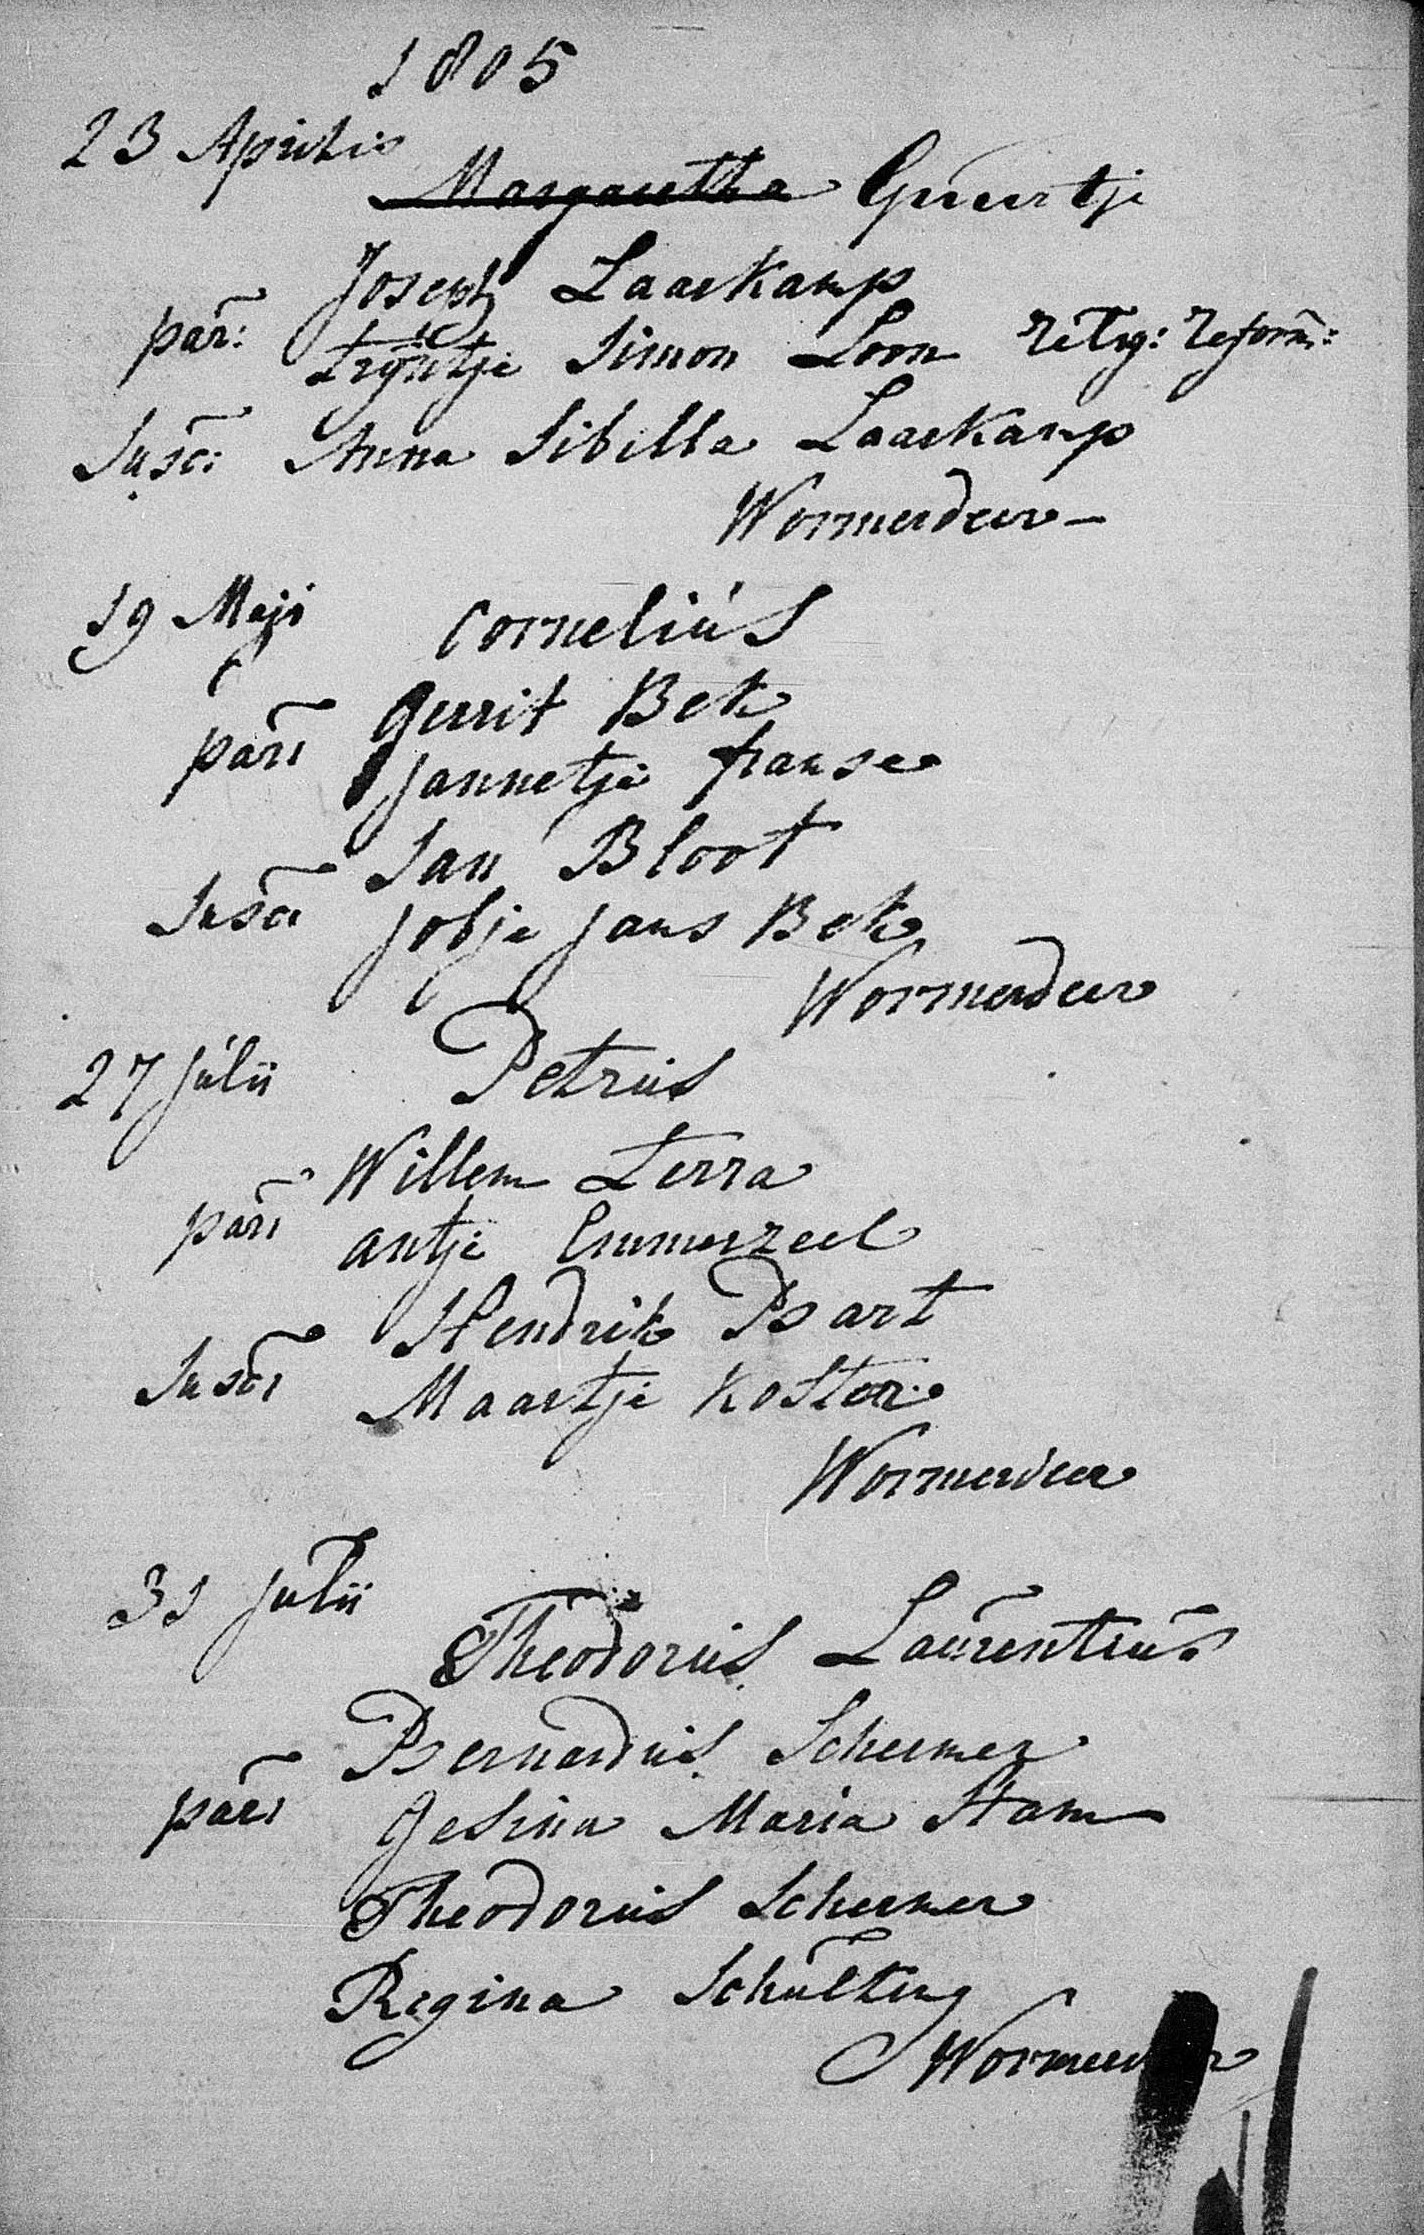 1805
23 Aprilis
Margaretha Guurtje
Joseph Laarkamp
par: trijntje Simon Loon relig: reform:
Susc: Anna Sibilla Laarkamp
Wormerveer
19 Maji Cornelius
Gerrit Bek
par: Jannetje franse
Jan Bloot
Susc: Jobje Jans Bek
Wormerveer
27 julii Petrus
Willem terra
par: antje Emmerzeel
Hendrik Bart
Susc: Maartje Koster
Wormerveer
31 julii
Theodorus Laurentius
Bernardus Schermer
par: Gesina Maria Stam
Theodorus Schermer
Regina Schulting
Wormerveer